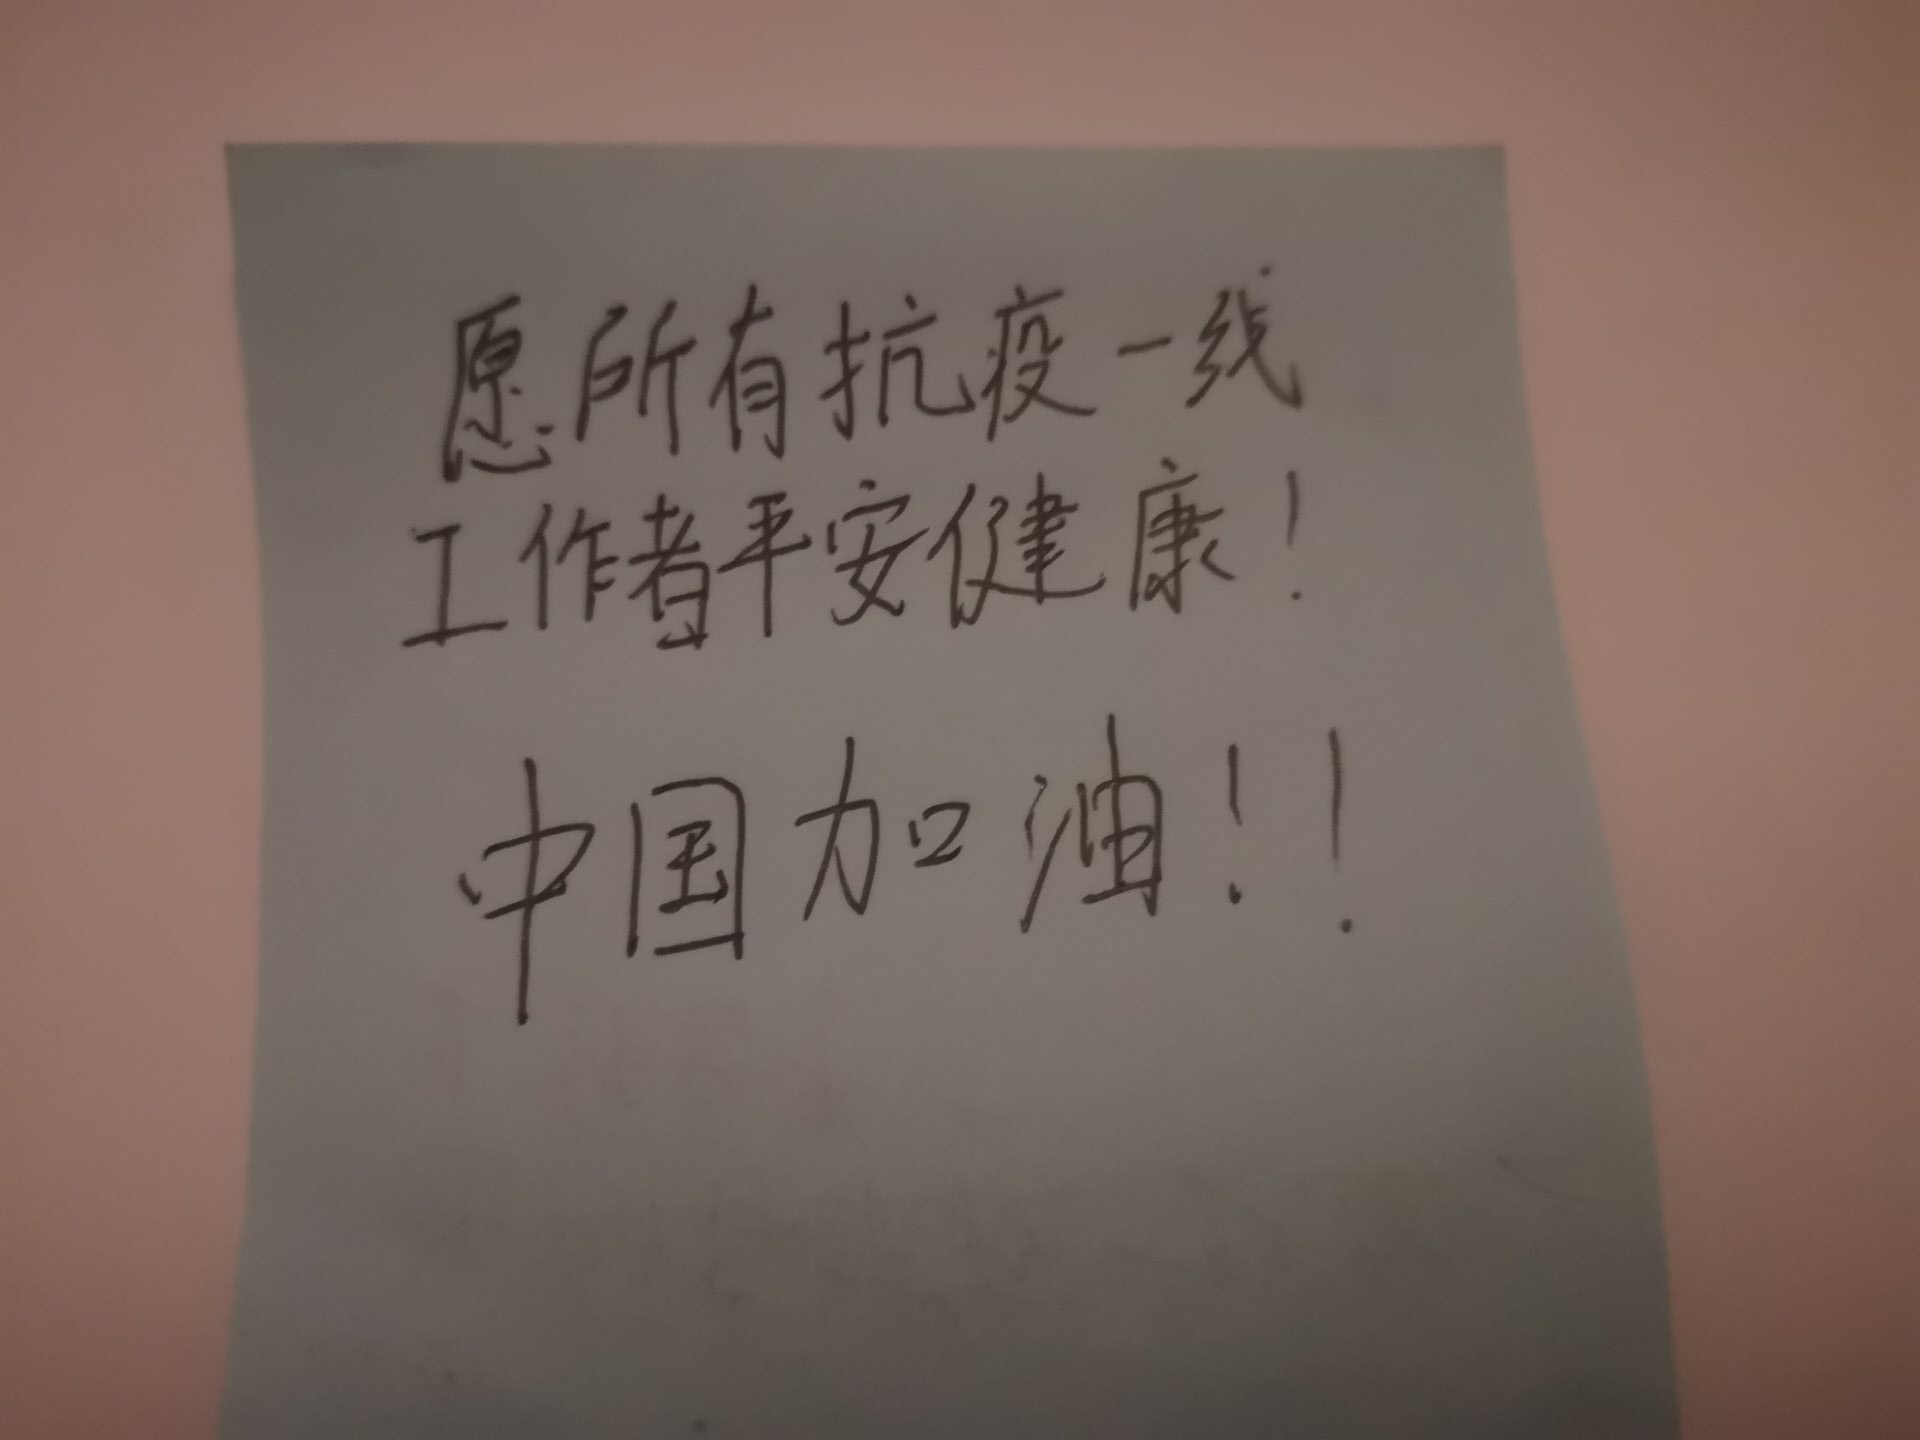 愿所有抗疫一线
工作者平安健康！
中国加油！！